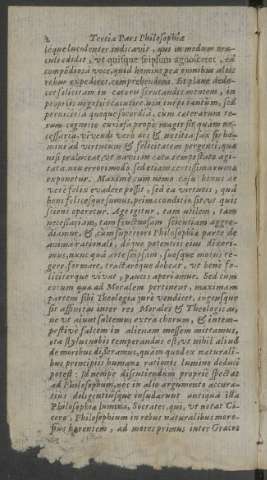 2 Tertia Pars Philosophiæ
que luculenter indicavit, qui in modum ora-
culi edidit, ut quisque seipsum agnosceret, ea
compendiosa voce, quid homini præ omnibus alijs
rebus expediret, comprehendens. Et plane
cere solicitam in cæteris scrutandis mentem, in
proprijs negotijs cæcutire, non inep tantùm, sed
perniciosa quoque socordia, cum cæterarum re-
rum cognitio curiosa propè magis sit quàm ne-
cessaria: vivendi verò ars & notitia sui sit ho-
mine ad virtutem & felicitatem pergenti, qua
nisi præluceat, ut navis in cæca tempestate agi-
tata, non erroribus modò sed etiam certissimis
exponetur. Maximè cum nemo casu bonus ac
verè felix evadere possit, sed ea virtutis, quâ
boni felicesque sumus, prima conditio sit, ut quis
sciens operetur. Age igitur, tam utilem, tam
necessariam, tam fructuosam scientiam aggre-
diamur, & cum superiori Philosophiæ parte de
anima rationali, deque potentijs eius dixeri-
mus, nunc quâ arte seipsam, suosque motus re-
gere, formare, tractareque debeat, ut bene fe-
liciterque vivat, paucis aperiamus. Sed cum
eorum quæ ad Moralem pertinent, maximam
partem sibi Theologia jure vendicet, ingensque
sit affinitas inter res Morales & Theologicas,
ne ut aiunt saltemus extra chorum, & intem-
pestivè falcem in alienam messem mittamus,
ita stylus nobis temperandus est, ut nihil aliud
de moribus disseramus, quàm quod ex naturali-
bus principijs humanæ rationis lumine deduci
potest: id nempe discutiendum propriè spectat
ad Philosophum, nec in alio argumento accura-
tius diligentiusque insudarunt antiqua illa
Philosophiæ lumina, Socrates, qui, ut notat Ci-
cero, Philosophiam in rebus naturalibus moro-
sius hærentem, ad mores primus inter Græcos